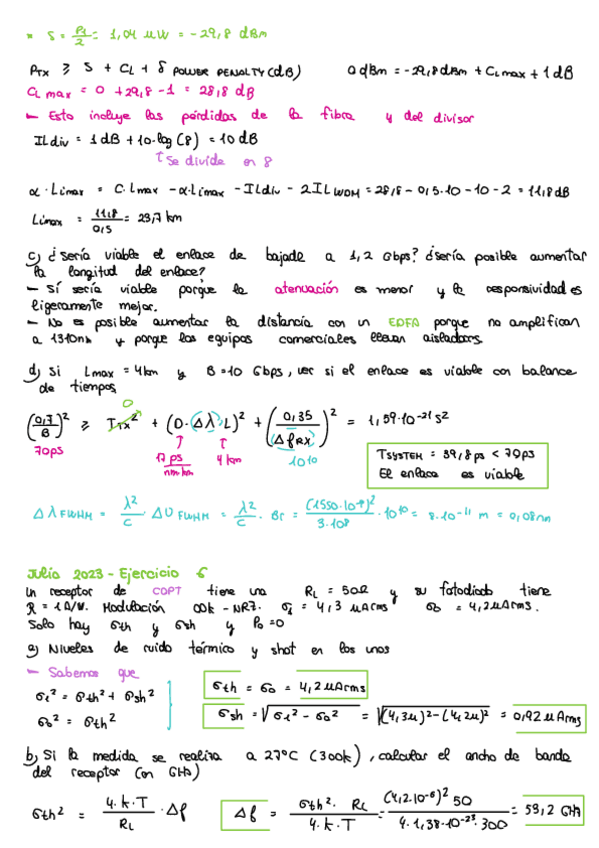 * S = P1/2 = 1,04 µW = -29,8 dBm
PTX ≥ S + CL + δ POWER PENALTY (dB) 0 dBm = -29,8 dBm + CL max + 1 dB
CL max = 0 + 29,8 - 1 = 28,8 dB
- Esto incluye las pérdidas de la fibra y del divisor
ILdiv = 1 dB + 10·log(8) = 10 dB
↑ Se divide en 8
α · Límax = C·Lmax - α·Límax - ILdiv - 2ILWDM = 28,8 - 0,5·10 - 10 - 2 = 11,8 dB
Límax = 11,8/0,5 = 23,7 km
c) ¿Sería viable el enlace de bajada a 1,2 Gbps? ¿Sería posible aumentar
la longitud del enlace?
- Sí sería viable porque la atenuación es menor y la responsividad es
ligeramente mejor.
- No es posible aumentar la distancia con un EDFA porque no amplifican
a 1310nm y porque los equipos comerciales llevan aisladores.
d) Si Lmax = 4km y B = 10 Gbps, ver si el enlace es viable con balance
de tiempos
(0,7/B)² ≥ TTX² + (D·Δλ·L)² + (0,35/ΔfRX)² = 1,59·10⁻²¹ s²
0
70ps 17 ps/nm·km 4 km 10¹⁰
TSYSTEM = 39,8 ps < 70ps
El enlace es viable
ΔλFWHM = λ²/c · ΔυFWHM = λ²/c · Br = (1550·10⁻⁹)²/3·10⁸ · 10¹⁰ = 8·10⁻¹¹ m = 0,08nm
Julio 2023 - Ejercicio 6
Un receptor de COPT tiene una RL = 50Ω y su fotodiodo tiene
R = 1 A/W. Modulación OOK - NRZ. σ1 = 4,3 µArms σ0 = 4,2 µArms.
Solo hay σth y σsh y P0 = 0
a) Niveles de ruido térmico y shot en los unos
- Sabemos que
σ1² = σth² + σsh²
σ0² = σth²
σth = σ0 = 4,2 µArms
σsh = √σ1² - σ0² = √(4,3µ)² - (4,2µ)² = 0,92 µArms
b) Si la medida se realiza a 27ºC (300k), calcular el ancho de banda
del receptor (en GHz)
σth² = 4·k·T/RL · Δf
Δf = σth² · RL/4·k·T = (4,2·10⁻⁶)² 50/4·1,38·10⁻²³·300 = 53,2 GHz